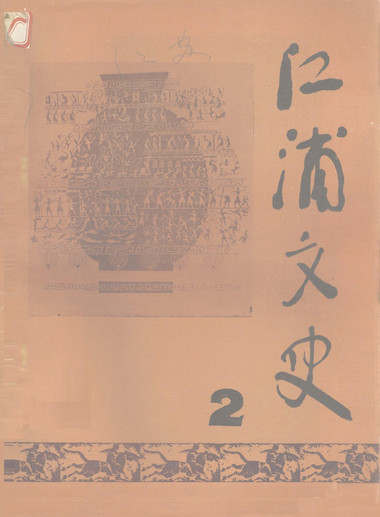 江浦文史
2